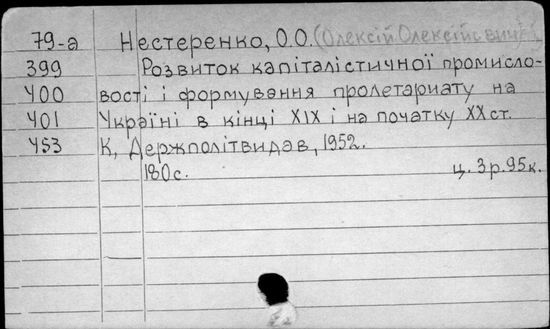 79-а Нестеренко, О.О. (Олексій Олексійович)
399 Розвиток капіталістичної промисло-
400 вості і формування пролетариату на
401 Україні в кінці XIX і на початку XX ст.
453 К, Держполітвидав, 1952.
180с. ц. 3р.95к.